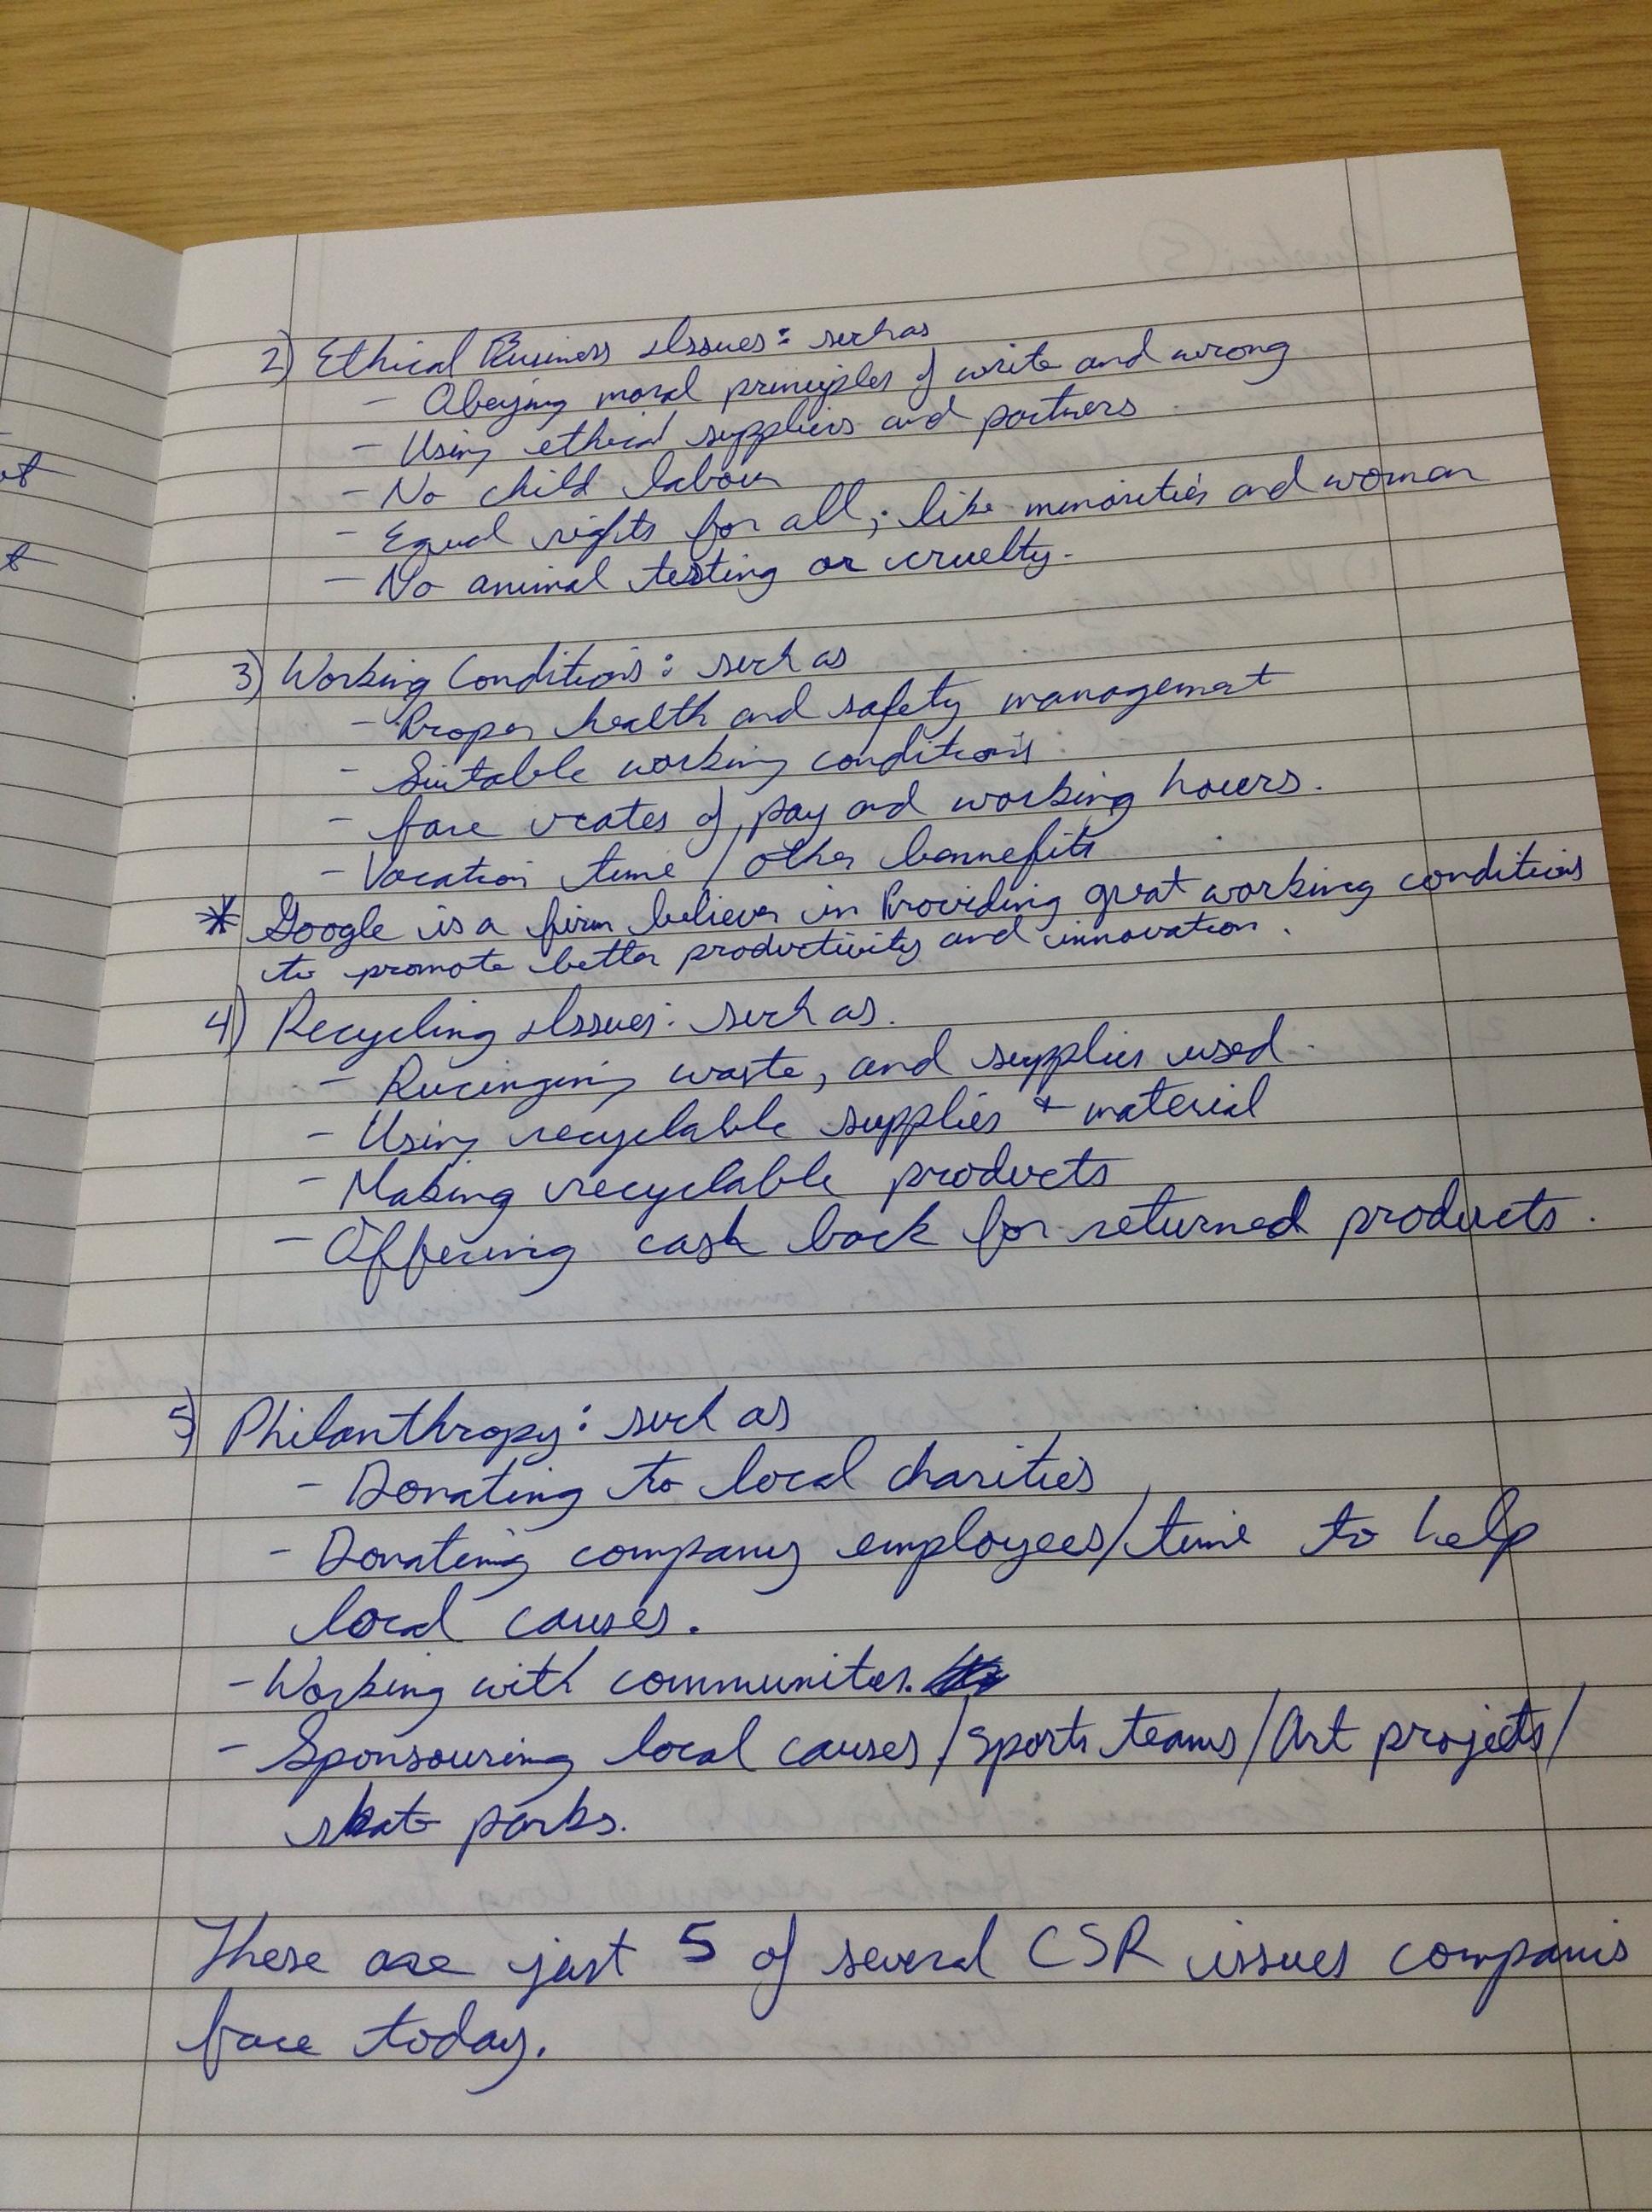 2) Ethical Business Issues: such as
- Obeying moral principles of write and wrong
- Using ethical suppliers and partners
- No child labour
- Equal rights for all; like minorities and woman
- No animal testing or cruelty.
3) Working Conditions: such as
- Proper health and safety management
- Suitable working conditions
- fare rates of pay and working hours.
- Vacation time / other bennefits
* Google is a firm believer in Providing great working conditions
to promote better productivity and innovation.
4) Recycling Issues: such as.
- waste, and supplies used.
- Using recyclable supplies + material
- Making recyclable products
- Offering cash back for returned products.
5) Philanthropy: such as
- Donating to local charities
- Donating company employees/time to help
local causes.
- Working with communites.
- Sponsouring local causes/sports teams/Art projects/
skate parks.
These are just 5 of several CSR issues companis
face today.